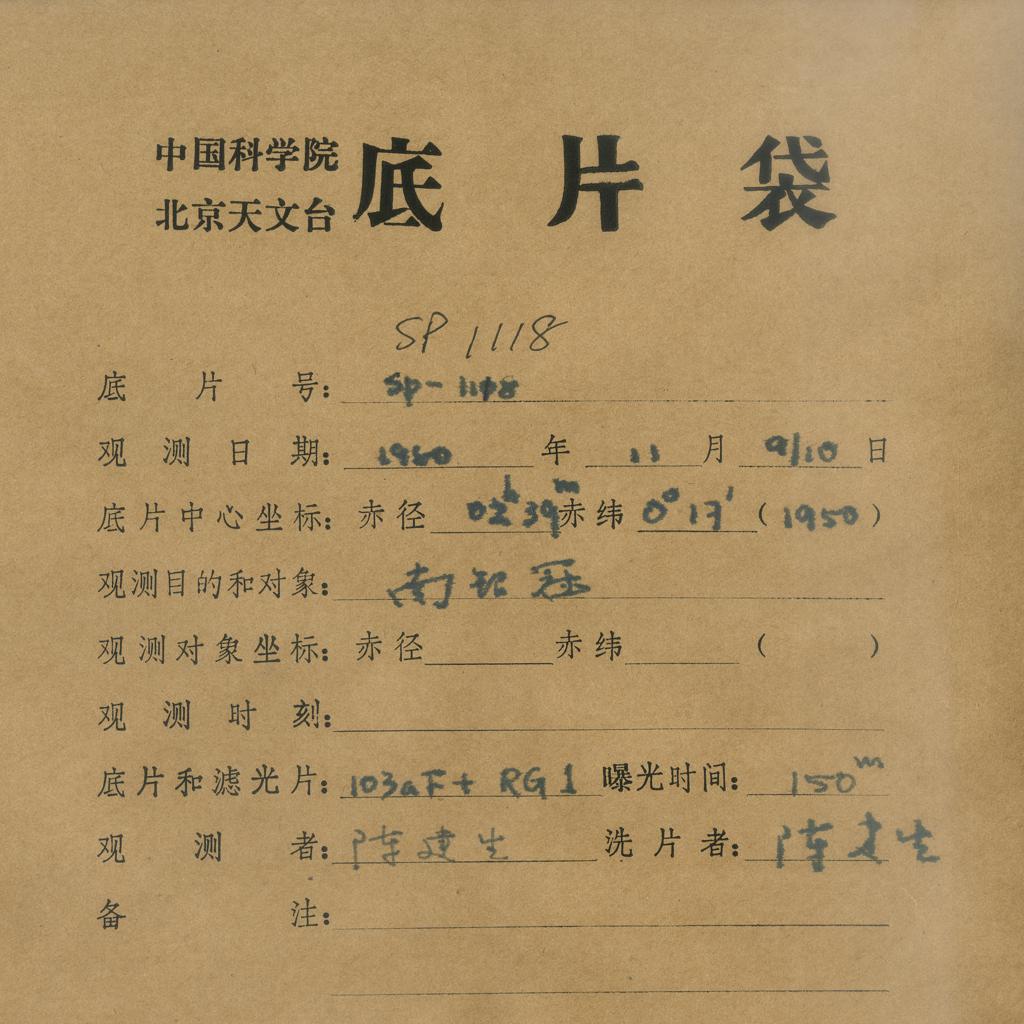 中国科学院
北京天文台
底片袋
SP 1118
底片号: Sp-1118
观测日期: 年 11 月 9/10 日
底片中心坐标: 赤径 02h39m 赤纬 0°17' (1950)
观测目的和对象: 南银冠
观测对象坐标: 赤径 赤纬 ( )
观测时刻:
底片和滤光片: 103aF+ RG1 曝光时间: 150m
观测者: 陈建生 洗片者: 陈建生
备注: